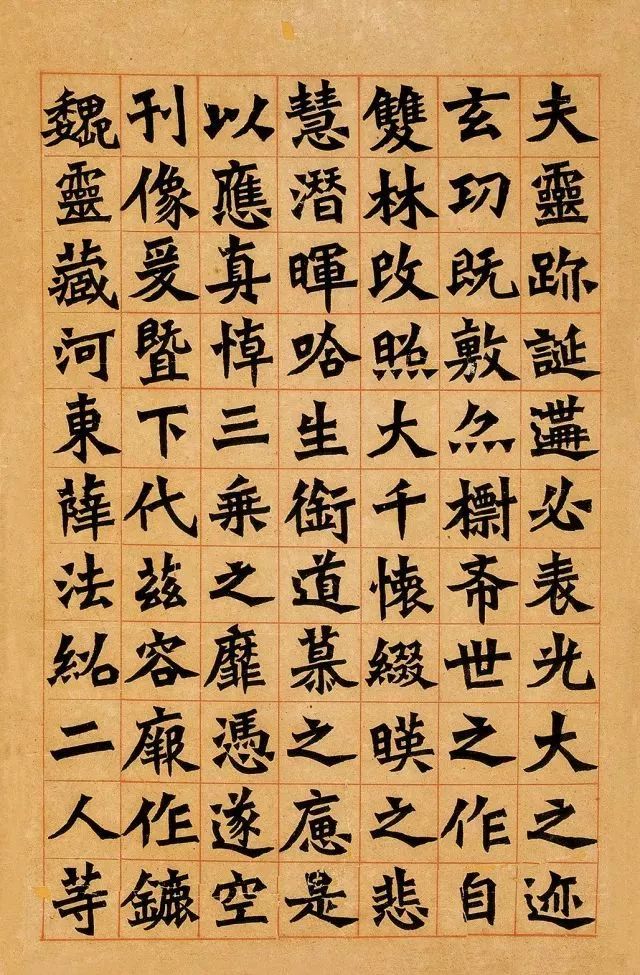 夫靈跡誕遘必表光大之迹
玄功既敷亦標希世之作自
雙林改照大千懷綴暎之悲
慧潛暉唅生銜道慕之是
以應真悼三乘之靡憑遂空
刊像爰暨下代茲容廓作鏕
魏靈藏河東薛法紹二人等